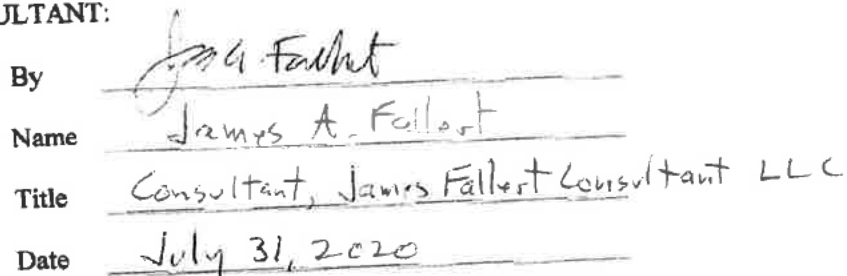 ULTANT:
By
Name James A. Fallert
Title Consultant, James Fallert Consultant LLC
Date July 31, 2020